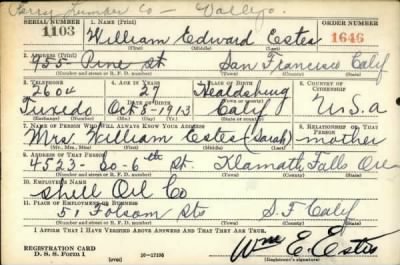 Perry Lumber Co — Vallejo.
SERIAL NUMBER 1. NAME (Print) ORDER NUMBER
1103 William Edward Estes 1646
(First) (Middle) (Last)
2. ADDRESS (Print)
955 Pine St San Francisco Calif
(Number and street or R. F. D. number) (Town) (County) (State)
3. TELEPHONE 4. AGE IN YEARS 5. PLACE OF BIRTH 6. COUNTRY OF CITIZENSHIP
2604 27 Healdsburg
DATE OF BIRTH (Town or county)
Tuxedo Oct 5 - 1913 Calif U.S.a
(Exchange) (Number) (Mo.) (Day) (Yr.) (State or country)
7. NAME OF PERSON WHO WILL ALWAYS KNOW YOUR ADDRESS 8. RELATIONSHIP OF THAT PERSON
Mrs William Estes (Sarah) mother
(Mr., Mrs., Miss) (First) (Middle) (Last)
9. ADDRESS OF THAT PERSON
4523 - So - 6th St. Klamath Falls Ore
(Number and street or R. F. D. number) (Town) (County) (State)
10. EMPLOYER'S NAME
Shell Oil Co
11. PLACE OF EMPLOYMENT OR BUSINESS
51 Folsom Sts S. F. Calif
(Number and street or R. F. D. number) (Town) (County) (State)
I AFFIRM THAT I HAVE VERIFIED ABOVE ANSWERS AND THAT THEY ARE TRUE.
REGISTRATION CARD
D. S. S. Form 1 (over) 16—17105 Wm E. Estes
(Registrant's signature)